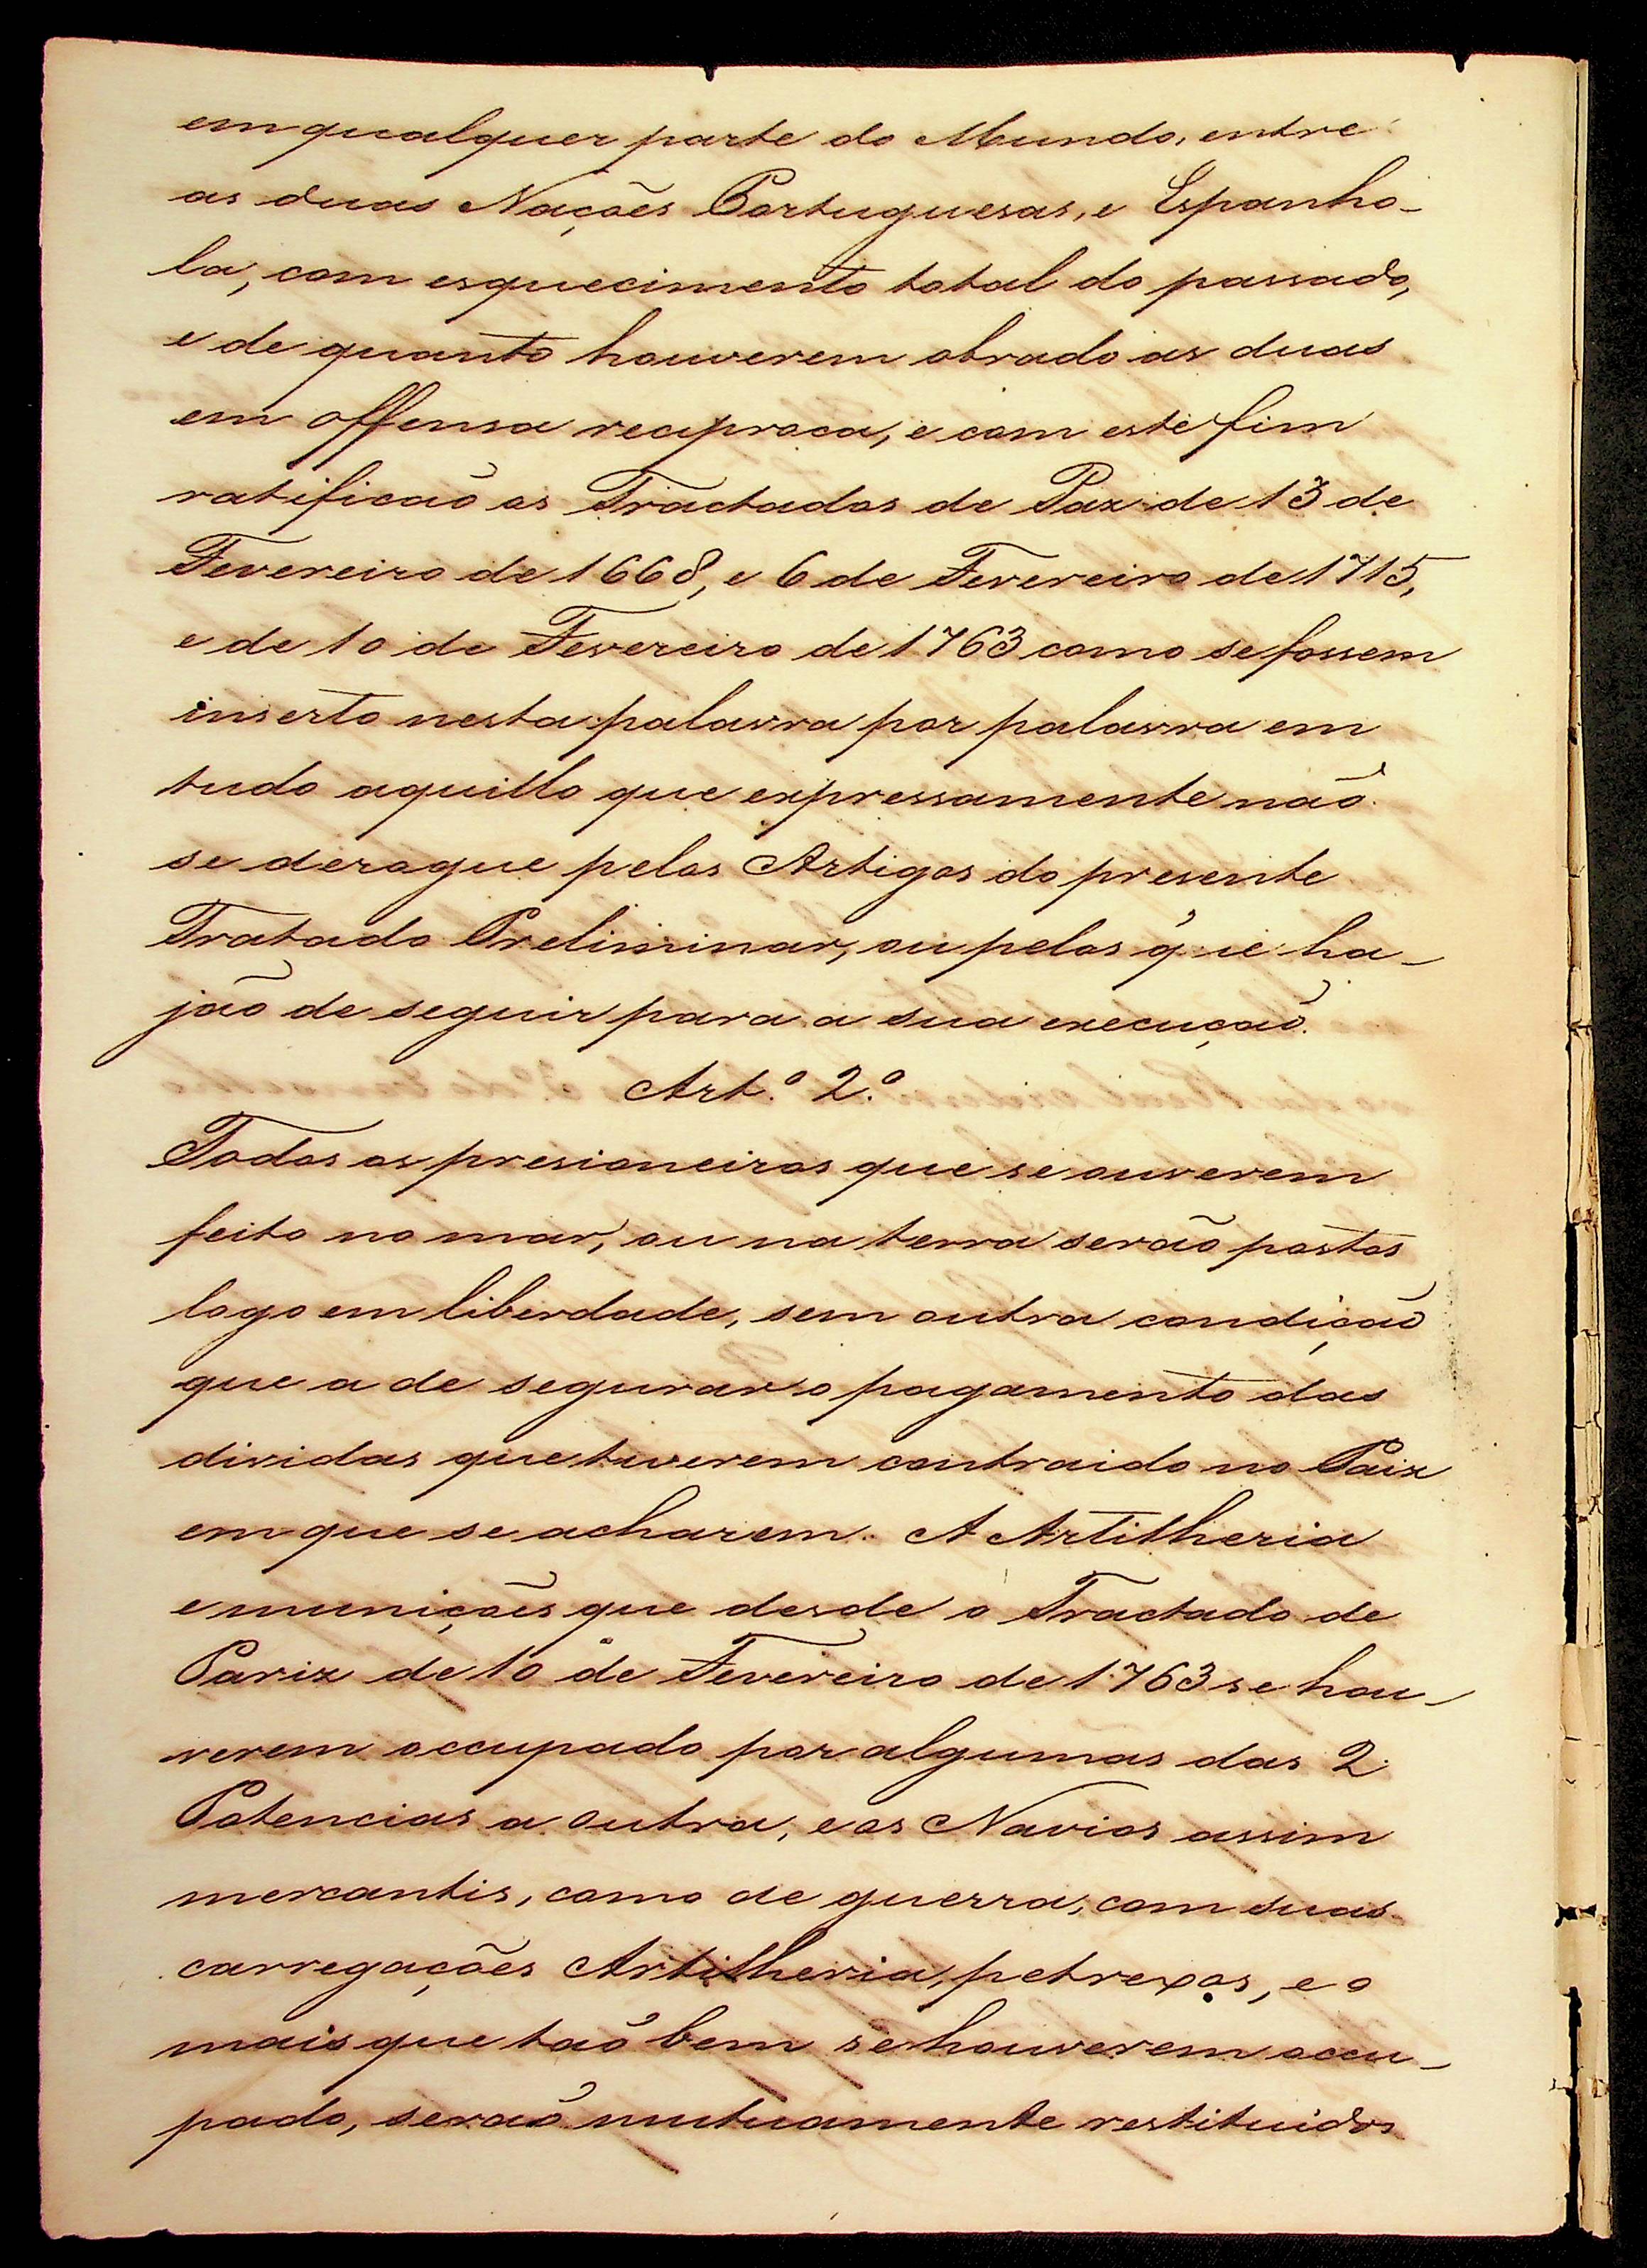 em qualquer parte do Mundo, entre
as duas Nações Portuguesas, e Espanho-
la, com esquecimento total do passado,
e de quanto houverem obrado as duas
em offensa reciproca, e com este fim
ratificaõ os Tractados de Paz de 13 de
Fevereiro de 1668, e 6 de Fevereiro de 1715,
e de 10 de Fevereiro de 1763 como se fossem
inserto nesta palavra por palavra em
tudo aquillo que expressamente não
se derague pelos Artigos do presente
Tratado Preliminar, ou pelos que ha-
jão de seguir para a sua execuçaõ.
Art.º 2.º
Todos os presioneiros que se ouverem
feito no mar, ou na terra serão postos
logo em liberdade, sem outra condiçaõ
que a de segurar o pagamento das
dividas que tiverem contraido no Paiz
em que se acharem. A Artilheria
e munições que desde o Tractado de
Pariz de 10 de Fevereiro de 1763 se hou-
verem occupado por algumas das 2
Potencias a outra, e os Navios assim
mercantis, como de guerra, com suas
carregações Artilheria, petrexos, e o
mais que taõ bem se houverem occu-
pado, seraõ mutuamente restituidos